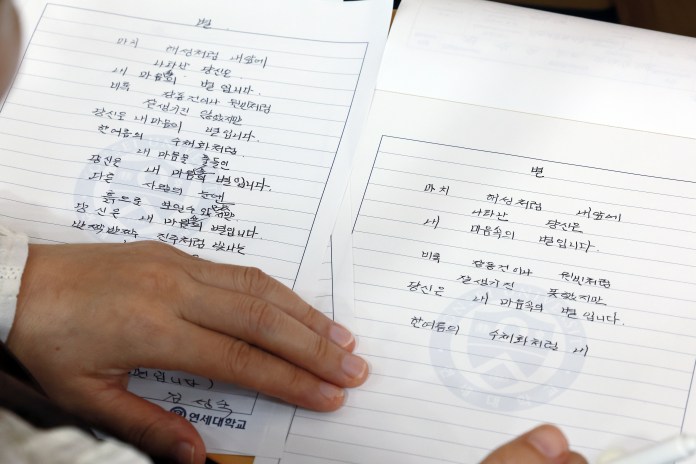 별
마치 혜성처럼 내앞에
나타난 당신은
내 마음속의 별입니다.
비록 장동건이나 원빈처럼
잘생기진 않았지만
당신은 내 마음의 별입니다.
한여름의 수채화처럼
내 마음을 물들인
당신은 내 마음속의 별입니다.
다른 사람의 눈엔
흙으로 보일수
당신은 내 마음속의 별입니다.
반짝반짝 진주처럼 빛나는
입니다)
연세대학교
별
마치 혜성처럼 내앞에
나타난 당신은
내 마음속의 별입니다.
비록 장동건이나 원빈처럼
잘생기진 못했지만
당신은 내 마음속의 별입니다.
한여름의 수채화처럼 내